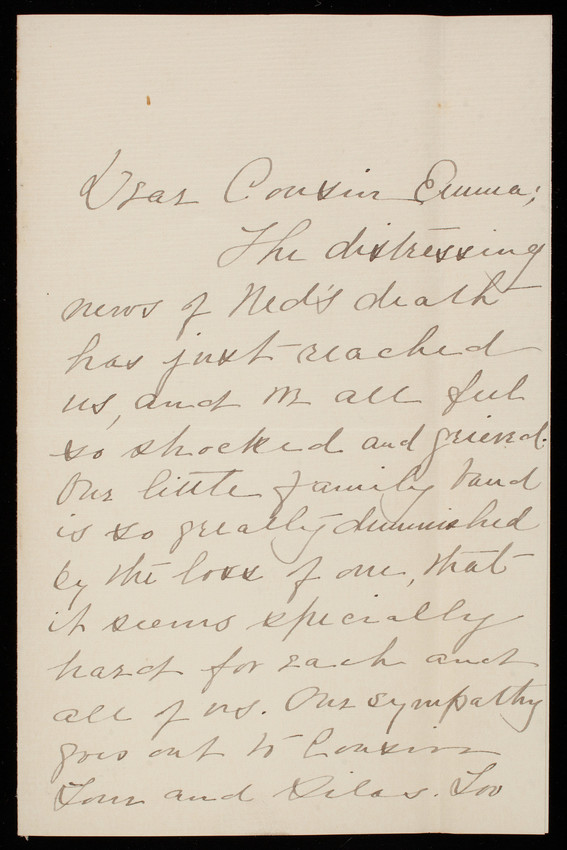 Dear Cousin Emma;
The distressing
news of Ned's death
has just reached
us, and we all feel
so shocked and grieved.
Our little family band
is so greatly diminished
by the loss of one, that
it seems specially
hard for each and
all of us. Our sympathy
goes out to Cousin
Tom and Silas. Too